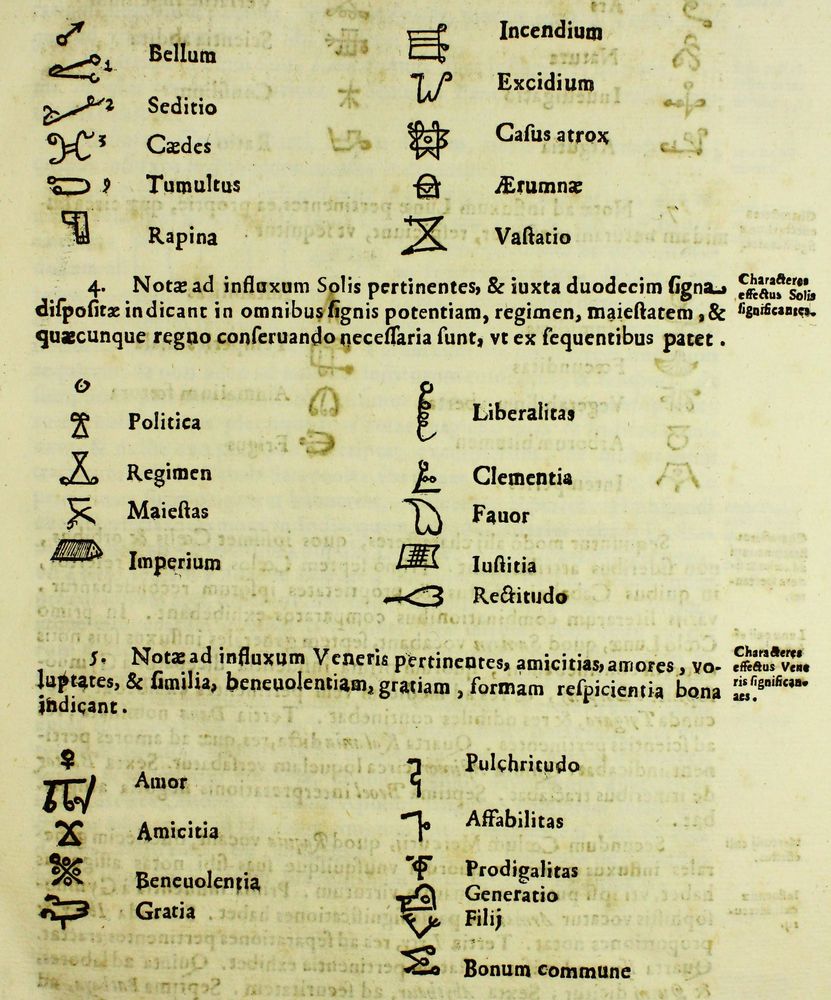 Bellum
1
Seditio
2
Cædes
3
Tumultus
Rapina
Incendium
Excidium
Caſus atrox
Ærumnæ
Vaſtatio
4. Notæ ad influxum Solis pertinentes, & iuxta duodecim ſigna
diſpoſitæ indicant in omnibus ſignis potentiam, regimen, maieſtatem, &
quæcunque regno conſeruando neceſſaria ſunt, vt ex ſequentibus patet.
Characteres
effectus Solis
ſignificantes.
Politica
Regimen
Maieſtas
Imperium
Liberalitas
Clementia
Fauor
Iuſtitia
Rectitudo
5. Notæ ad influxum Veneris pertinentes, amicitias, amores, vo-
luptates, & ſimilia, beneuolentiam, gratiam, formam reſpicientia bona
indicant.
Characteres
effectus Vene
ris ſignifican-
tes.
♀
Amor
Amicitia
Beneuolentia
Gratia
Pulchritudo
Affabilitas
Prodigalitas
Generatio
Filij
Bonum commune